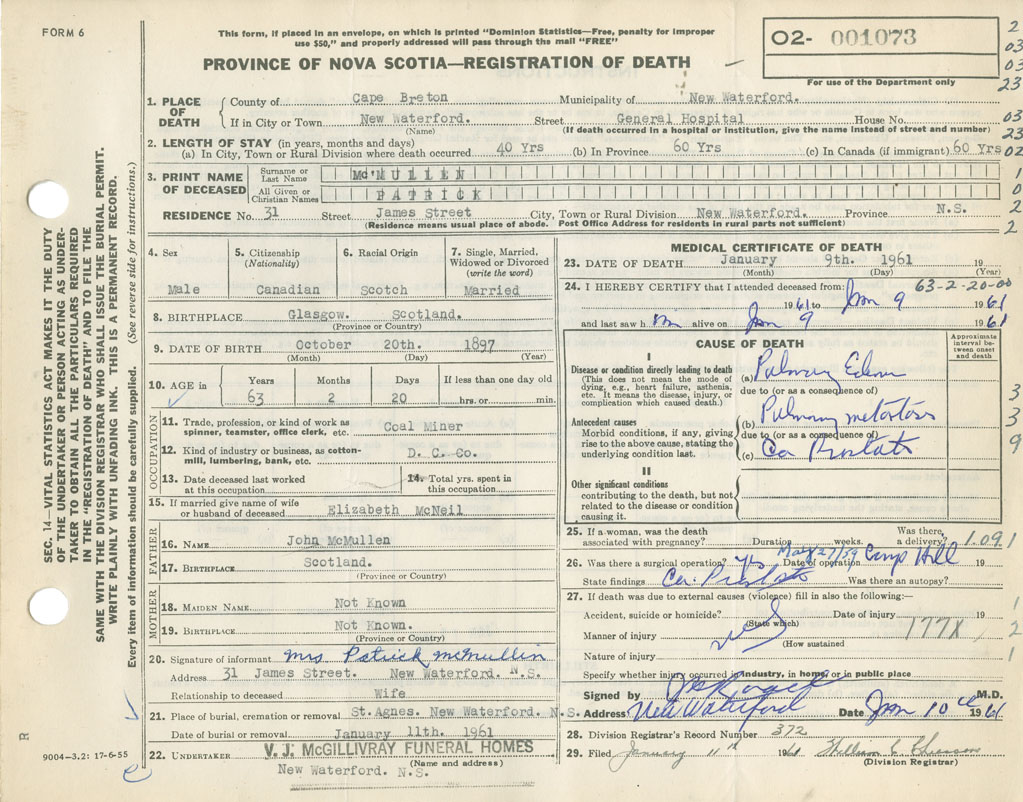 FORM 6
This form, if placed in an envelope, on which is printed "Dominion Statistics—Free, penalty for improper
use $50," and properly addressed will pass through the mail "FREE"
PROVINCE OF NOVA SCOTIA—REGISTRATION OF DEATH
02- 001073
For use of the Department only
2
03
03
23
1. PLACE OF DEATH
County of Cape Breton Municipality of New Waterford.
If in City or Town New Waterford. Street General Hospital House No. 03
(Name) (If death occurred in a hospital or institution, give the name instead of street and number) 23
2. LENGTH OF STAY (in years, months and days)
(a) In City, Town or Rural Division where death occurred 40 Yrs (b) In Province 60 Yrs (c) In Canada (if immigrant) 60 Yrs 02
3. PRINT NAME OF DECEASED
Surname or Last Name McMULLEN 1
All Given or Christian Names PATRICK 0
RESIDENCE No. 31 Street James Street City, Town or Rural Division New Waterford. Province N.S. 2
(Residence means usual place of abode. Post Office Address for residents in rural parts not sufficient) 2
4. Sex
Male
5. Citizenship
(Nationality)
Canadian
6. Racial Origin
Scotch
7. Single, Married, Widowed or Divorced
(write the word)
Married
8. BIRTHPLACE Glasgow. Scotland.
(Province or Country)
9. DATE OF BIRTH October 20th. 1897
(Month) (Day) (Year)
10. AGE in Years Months Days If less than one day old
63 2 20 hrs. or min.
OCCUPATION
11. Trade, profession, or kind of work as
spinner, teamster, office clerk, etc. Coal Miner
12. Kind of industry or business, as cotton-
mill, lumbering, bank, etc. D. C. Co.
13. Date deceased last worked
at this occupation
14. Total yrs. spent in
this occupation
15. If married give name of wife
or husband of deceased Elizabeth McNeil
FATHER
16. NAME John McMullen
17. BIRTHPLACE Scotland.
(Province or Country)
MOTHER
18. MAIDEN NAME Not Known
19. BIRTHPLACE Not Known.
(Province or Country)
20. Signature of informant Mrs Patrick McMullin
Address 31 James Street. New Waterford. N.S.
Relationship to deceased Wife
21. Place of burial, cremation or removal St.Agnes. New Waterford. N.S.
Date of burial or removal January 11th. 1961
22. UNDERTAKER V. J. McGILLIVRAY FUNERAL HOMES
(Name and address)
New Waterford. N.S.
MEDICAL CERTIFICATE OF DEATH
23. DATE OF DEATH January 9th. 1961 19
(Month) (Day) (Year)
24. I HEREBY CERTIFY that I attended deceased from: 63-2-20-00
1961 to Jan 9 1961
and last saw h m alive on Jan 9 1961
CAUSE OF DEATH
Approximate interval between onset and death
I
Disease or condition directly leading to death
(This does not mean the mode of
dying, e.g., heart failure, asthenia,
etc. It means the disease, injury, or
complication which caused death.)
(a) Pulmonary Edema
due to (or as a consequence of)
Antecedent causes
Morbid conditions, if any, giving
rise to the above cause, stating the
underlying condition last.
(b) Pulmonary metastasis
due to (or as a consequence of)
(c) Ca Prostate
3
3
9
II
Other significant conditions
contributing to the death, but not
related to the disease or condition
causing it.
25. If a woman, was the death
associated with pregnancy? Duration weeks. Was there,
a delivery? 1.091
26. Was there a surgical operation? yes Date of operation May 27/59 Camp Hill
State findings Ca. Prostate Was there an autopsy?
27. If death was due to external causes (violence) fill in also the following:—
Accident, suicide or homicide? Date of injury 19
(State which)
Manner of injury 177X
(How sustained
Nature of injury
1
2
1
Specify whether injury occurred in industry, in home, or in public place
Signed by M.D.
Address New Waterford Date Jan 10 1961
28. Division Registrar's Record Number 372
29. Filed January 11th 1961
(Division Registrar)
SEC. 14—VITAL STATISTICS ACT MAKES IT THE DUTY
OF THE UNDERTAKER OR PERSON ACTING AS UNDER-
TAKER TO OBTAIN ALL THE PARTICULARS REQUIRED
IN THE "REGISTRATION OF DEATH" AND TO FILE THE
SAME WITH THE DIVISION REGISTRAR WHO SHALL ISSUE THE BURIAL PERMIT.
WRITE PLAINLY WITH UNFADING INK. THIS IS A PERMANENT RECORD.
Every item of information should be carefully supplied. (See reverse side for instructions.)
R
9004—3.2: 17-6-55